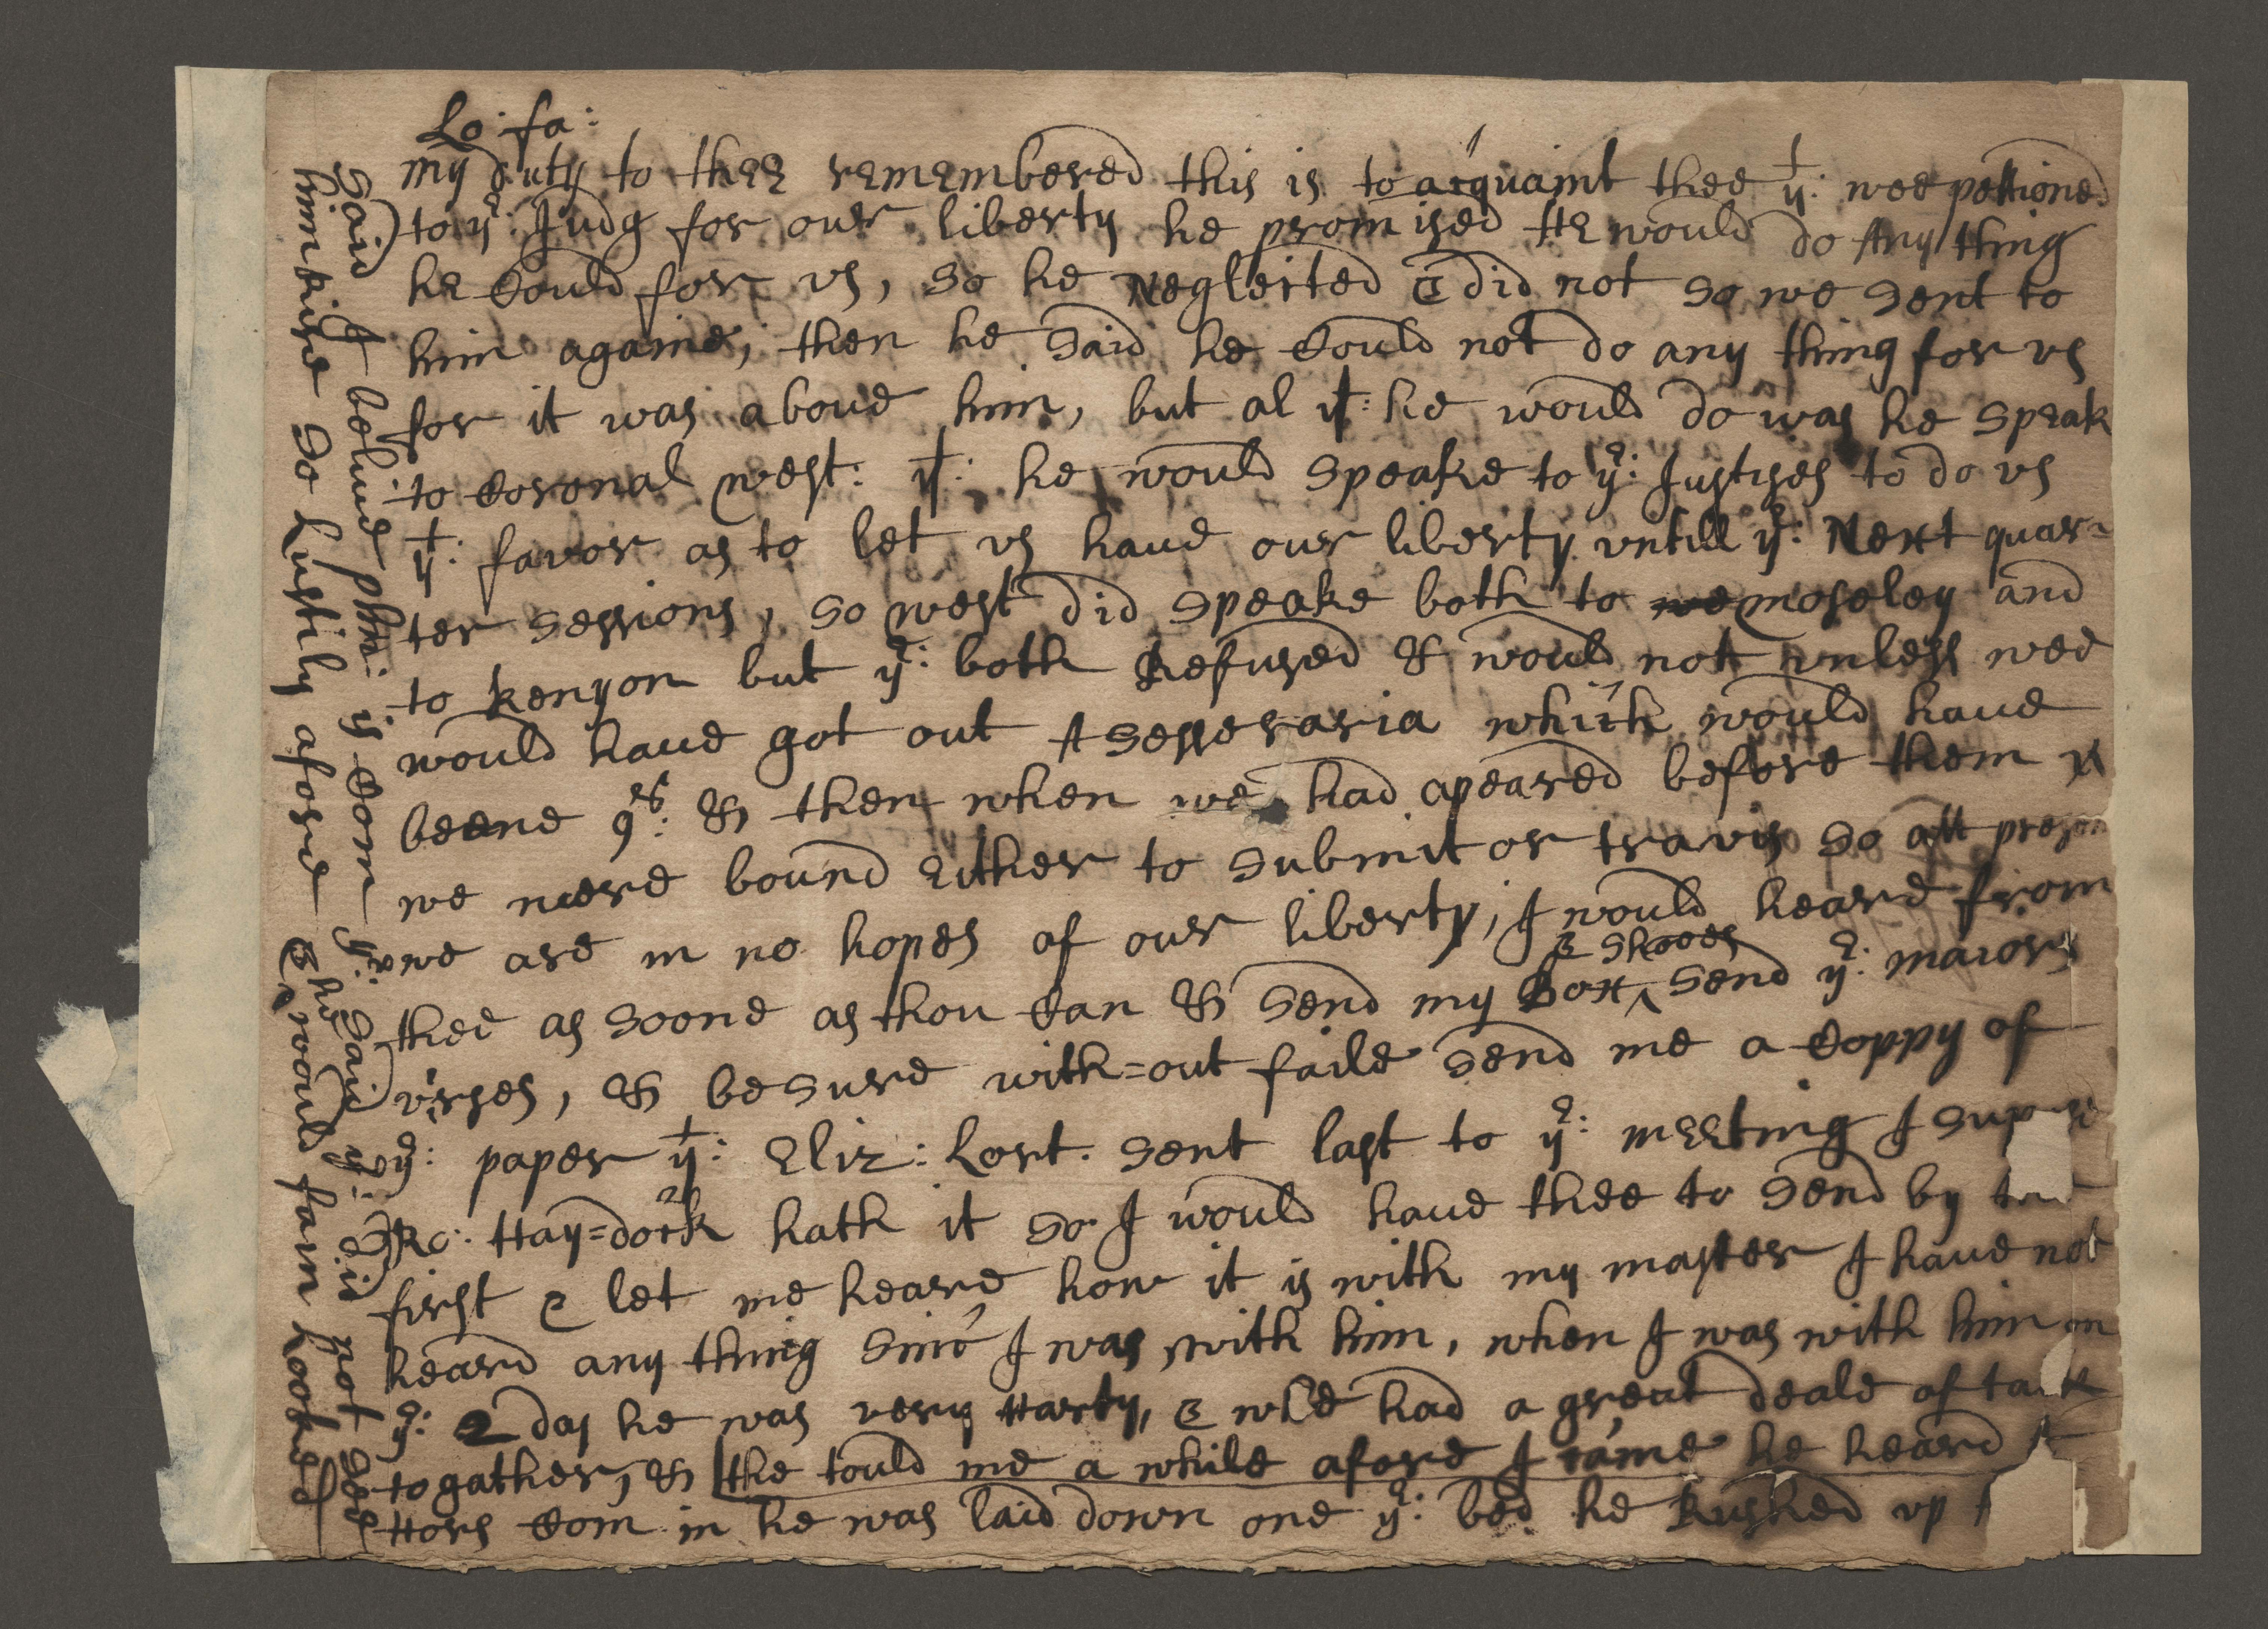 Lo: fa:
my duty to thee remembered this is to acquaint thee yt: wee pettioned
to ye: Judg for our liberty he promised He would do Any thing
he Could for vs, so he Neglected & did not so we sent to
him againe, then he Said he Could not do any thing for vs
for it was aboue him, but al yt: he would do was he speak
to Coronal west: yt: he would speake to ye: Justises to do vs
yt: favor as to let vs haue our liberty vntill ye: Next quar=
ter sessions, so west did speake both to moseley and
to kenyon but ye: both Refused & would not vnless wee
would haue got out A seseraria which would haue
beene & then when we had apeared before them
we weere bound Either to submit or travis so att
we are in no hopes of our liberty, I would heare from
& Shooes
thee as soone as thou Can & send my Box ^ send ye: maiors
verses, & be sure with=out faile send me a Coppy of
ye: paper yt: Eliz: Lort. sent last to ye: meeting I
Ro: Hay=dock hath it so I would haue thee to send by
first & let me heare how it is with my master I haue not
heard any thing since I was with him, when I was with him on
ye: 2 day he was very Harty, & wee had a great deale of talk
to gather, & the tould me a while afore I came he heard A
Hors Com in he was laid down one ye: bed he Rushed vp
Said I beliue phin: is Com ye: said ye: did not see
him kise so Lustily afore & he would fain Looked